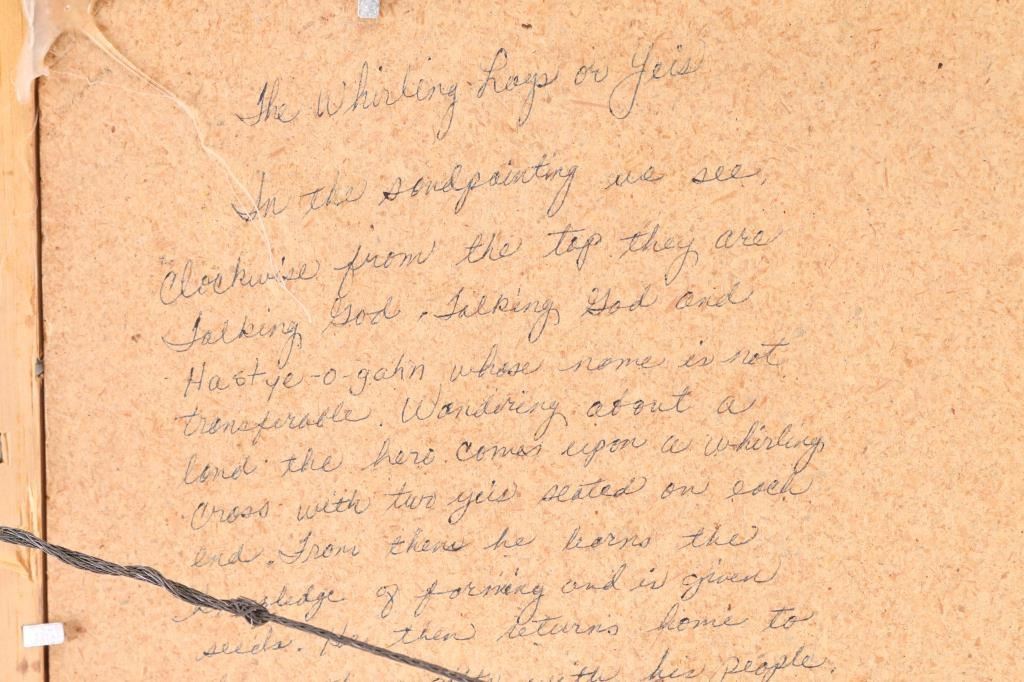 The Whirling Logs or Yeis
In the sandpainting we see,
Clockwise from the top they are
Talking God, Talking God and
Hastye-o-gahn whose name is not
transferable. Wandiring about a
land the hero comes upon a whirling
cross with two yeis seated on each
end. From them he learns the
of farming and is given
seeds. He then returns home to
with his people.